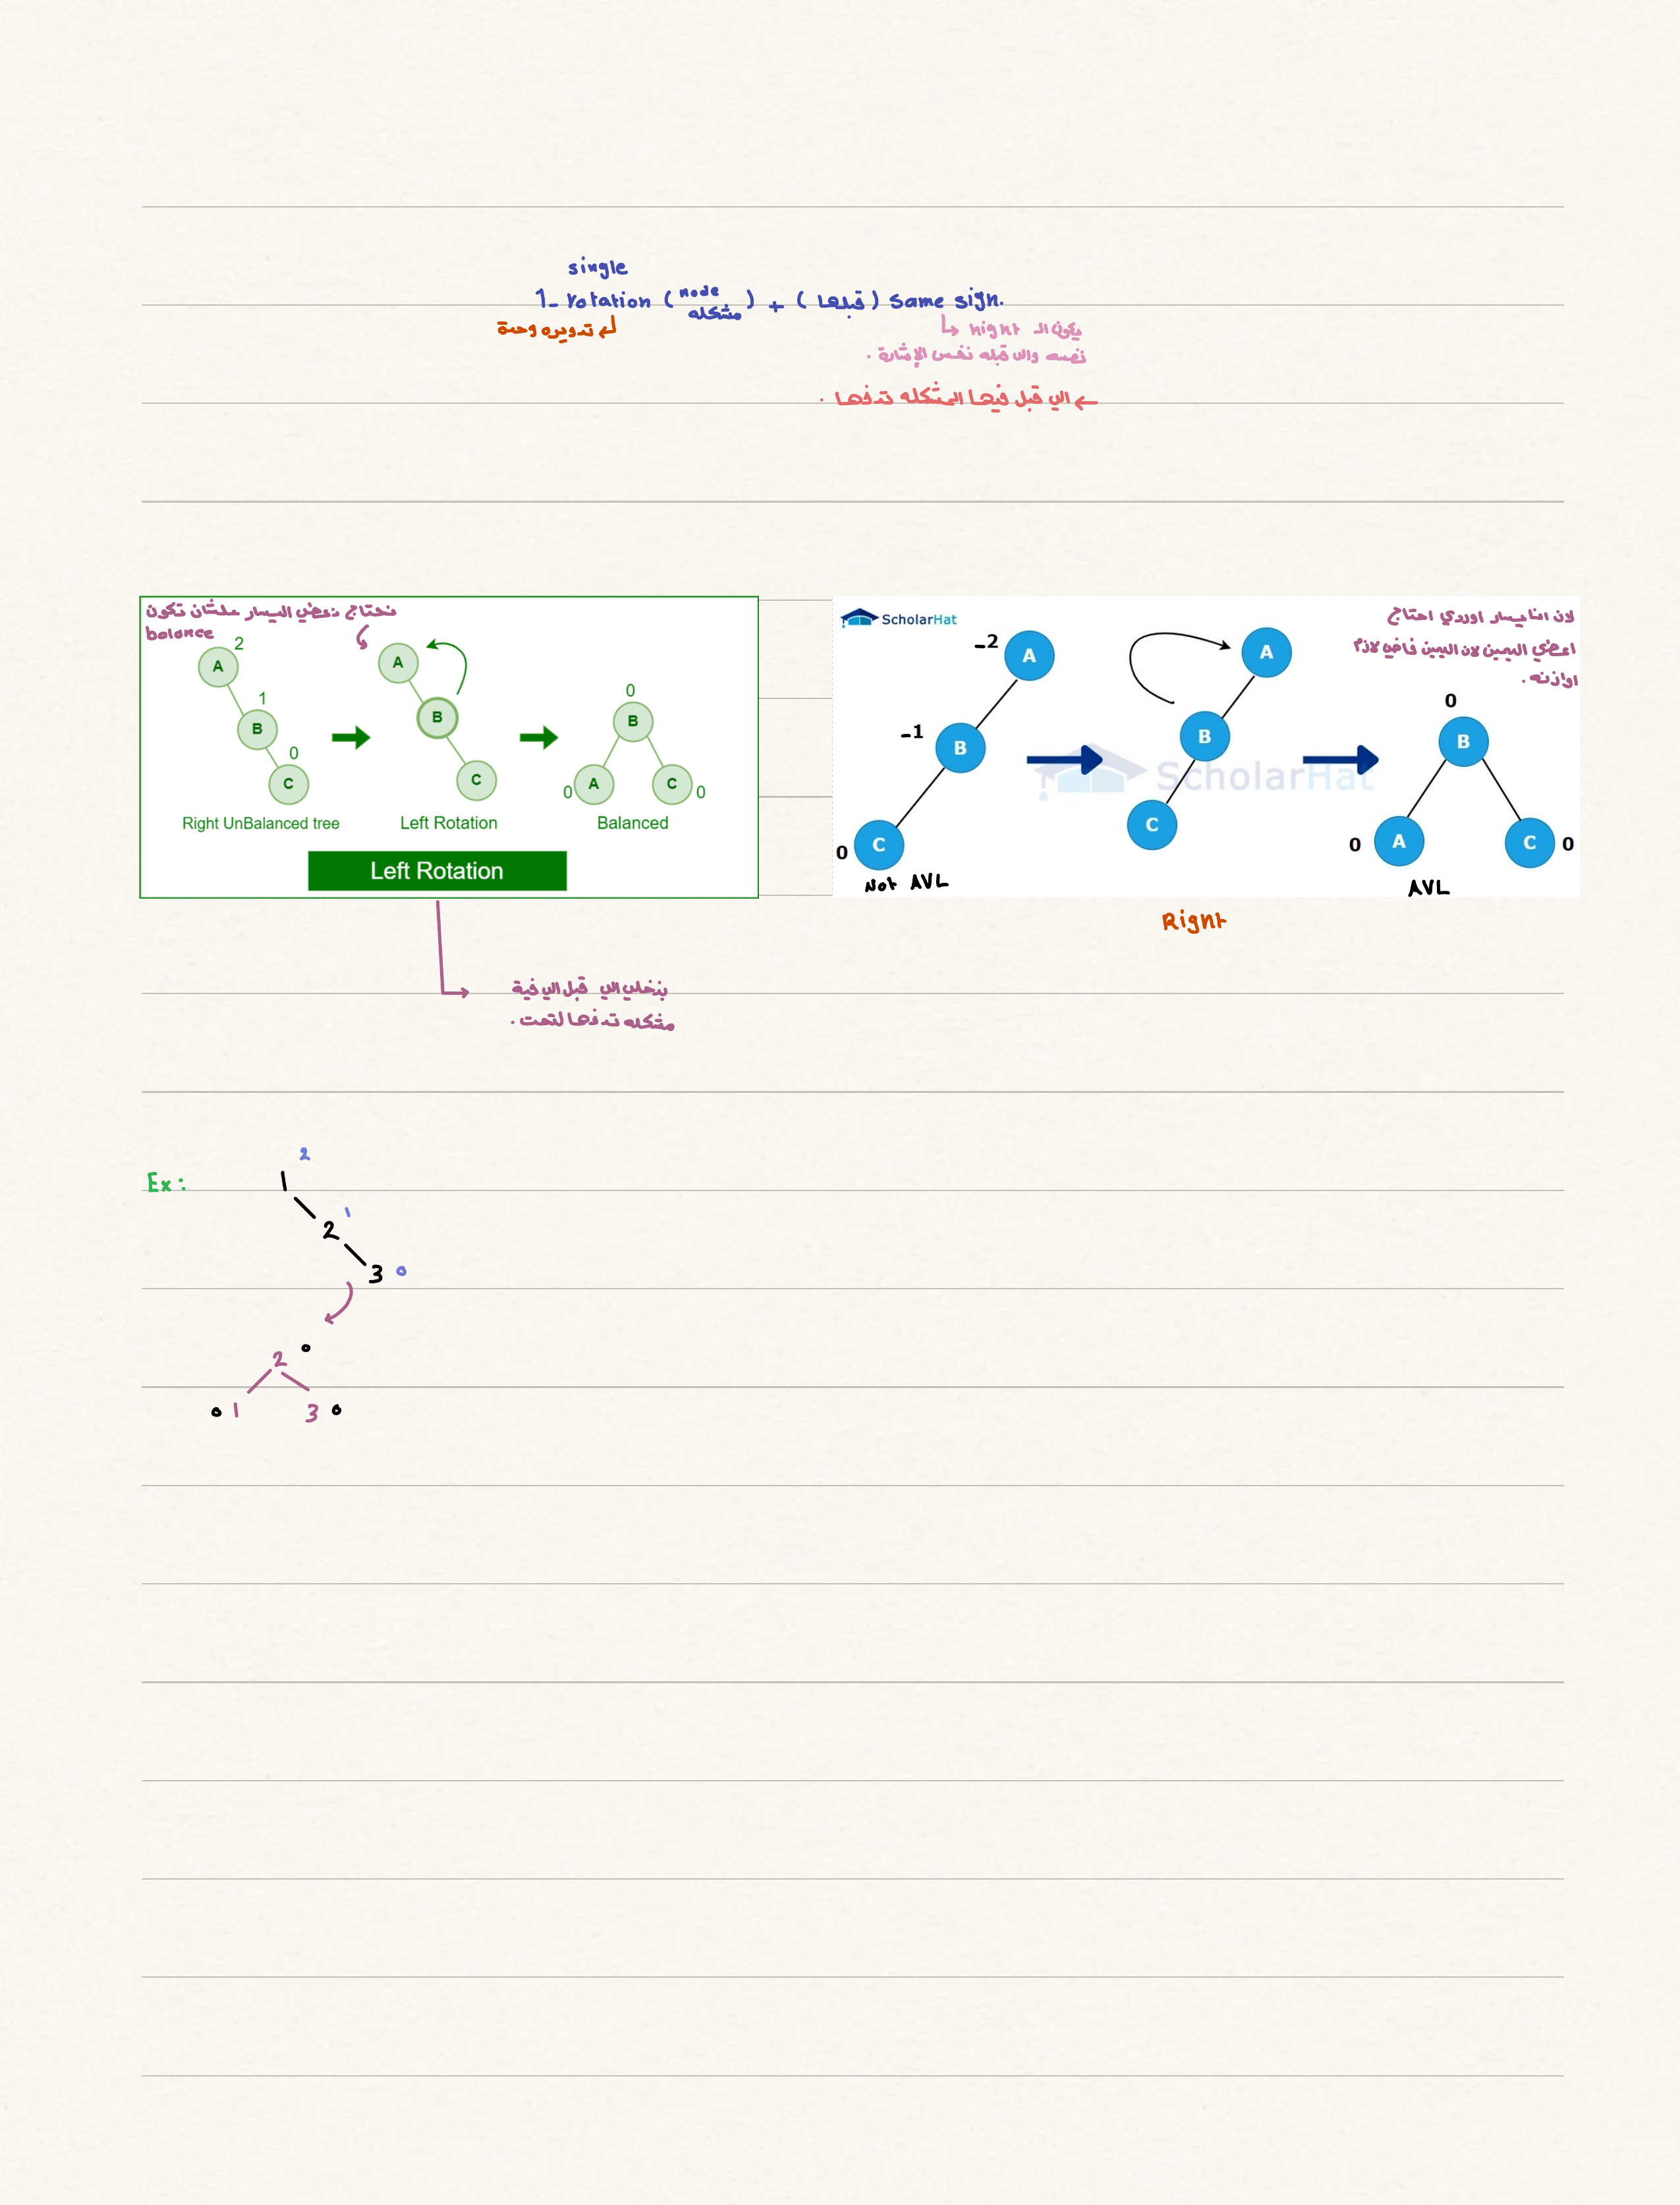 single
1- rotation ( node مشكله ) + ( قبلها ) same sign.
↳ تدويره وحدة
↳ يكون الـ hight
نفسه والي قبله نفس الإشارة .
← الي قبل فيها المشكله تدفها .
نحتاج نعطي اليسار علشان تكون
balance
2
A
1
B
0
C
A
B
C
0
B
0 A
C 0
Right UnBalanced tree
Left Rotation
Balanced
Left Rotation
ScholarHat
لان انا يسار اوردي احتاج
اعطي اليمين لان اليمين فاضي لازم
اوازنه .
-2 A
-1 B
0 C
Not AVL
A
B
C
ScholarHat
0
B
0 A
C 0
AVL
Right
بنخلي الي قبل الي فية
مشكله تدفها لتحت .
Ex :
2
1
1
2
3 0
2 0
0 1
3 0